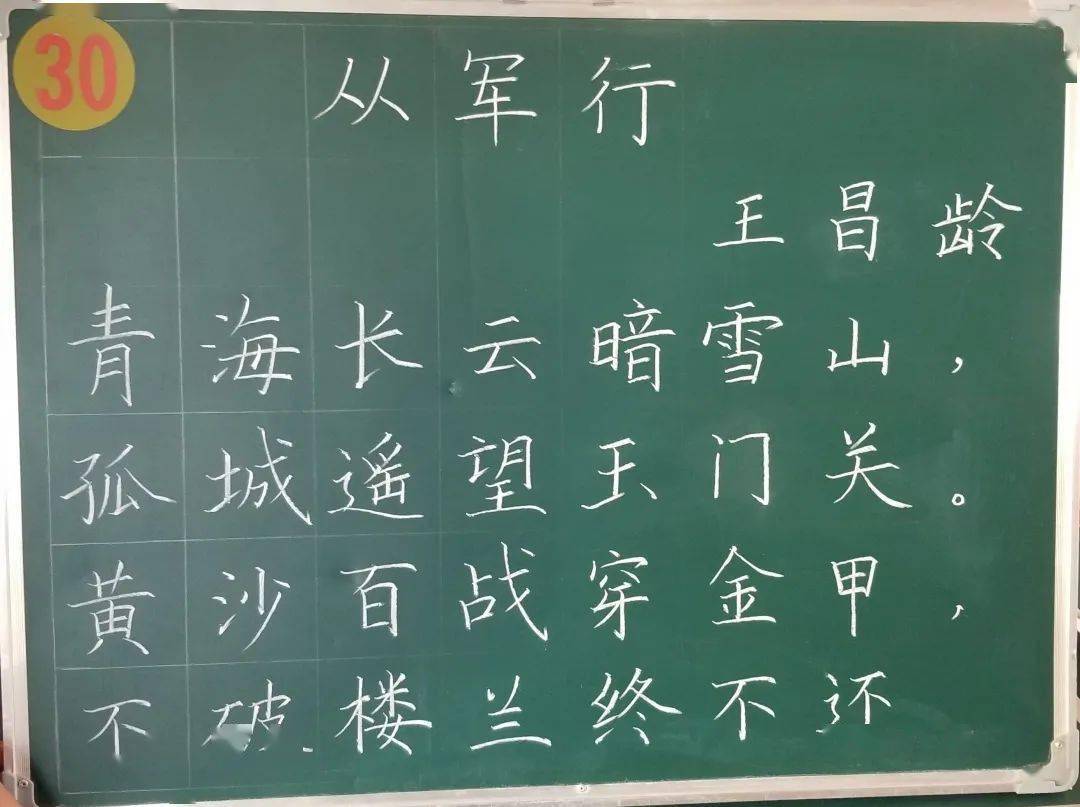 30
从军行
王昌龄
青海长云暗雪山，
孤城遥望玉门关。
黄沙百战穿金甲，
不破楼兰终不还